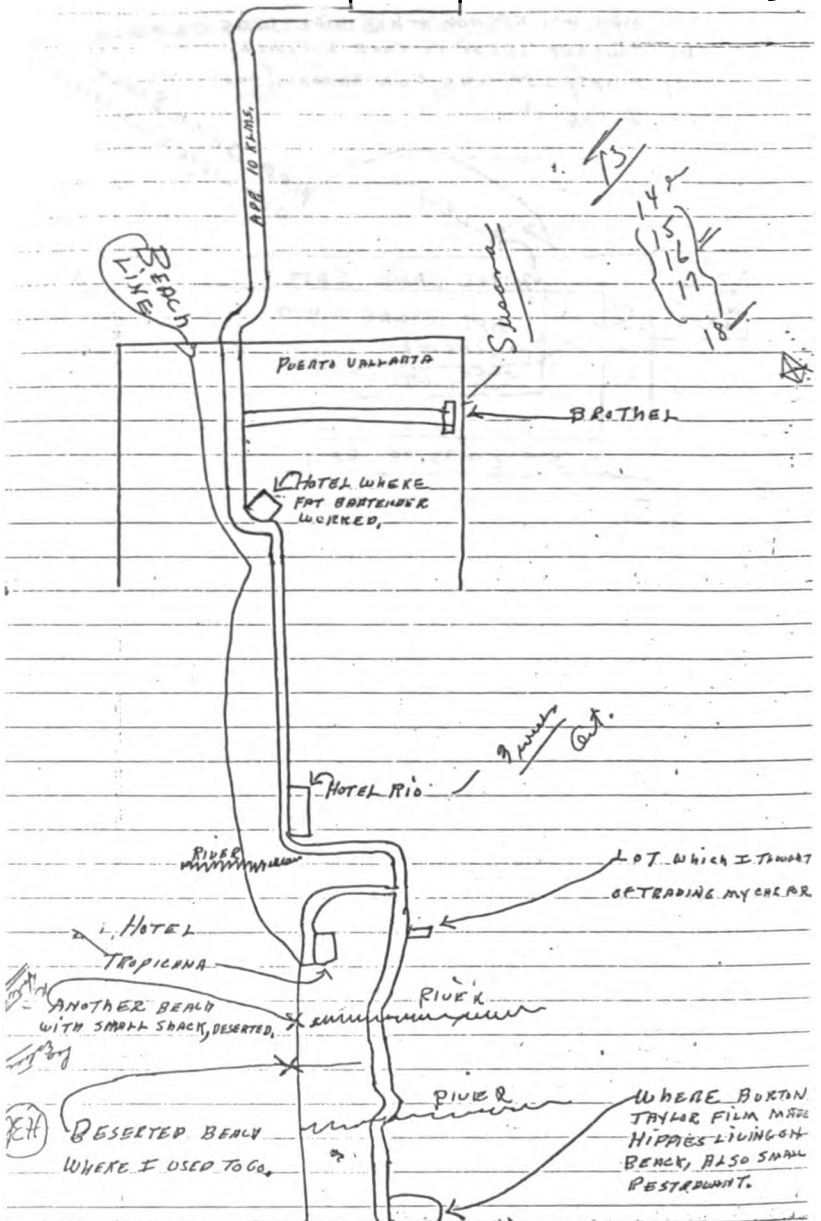 APP. 10 KLMS.
BEACH
LINE
15
14
15
16
17
18
Susana
PUERTO VALLARTA
BROTHEL
HOTEL WHERE
FAT BARTENDER
WORKED.
Out.
HOTEL RIO
RIVER
LOT which I THOUGHT
OF TRADING MY CAR FOR
HOTEL
TROPICANA
RIVER
ANOTHER BEACH
WITH SMALL SHACK, DESERTED.
RIVER
DESERTED BEACH
WHERE I USED TO GO.
WHERE BURTON
TAYLOR FILM MADE
HIPPIES LIVING ON
BEACH, ALSO SMALL
RESTRAUANT.